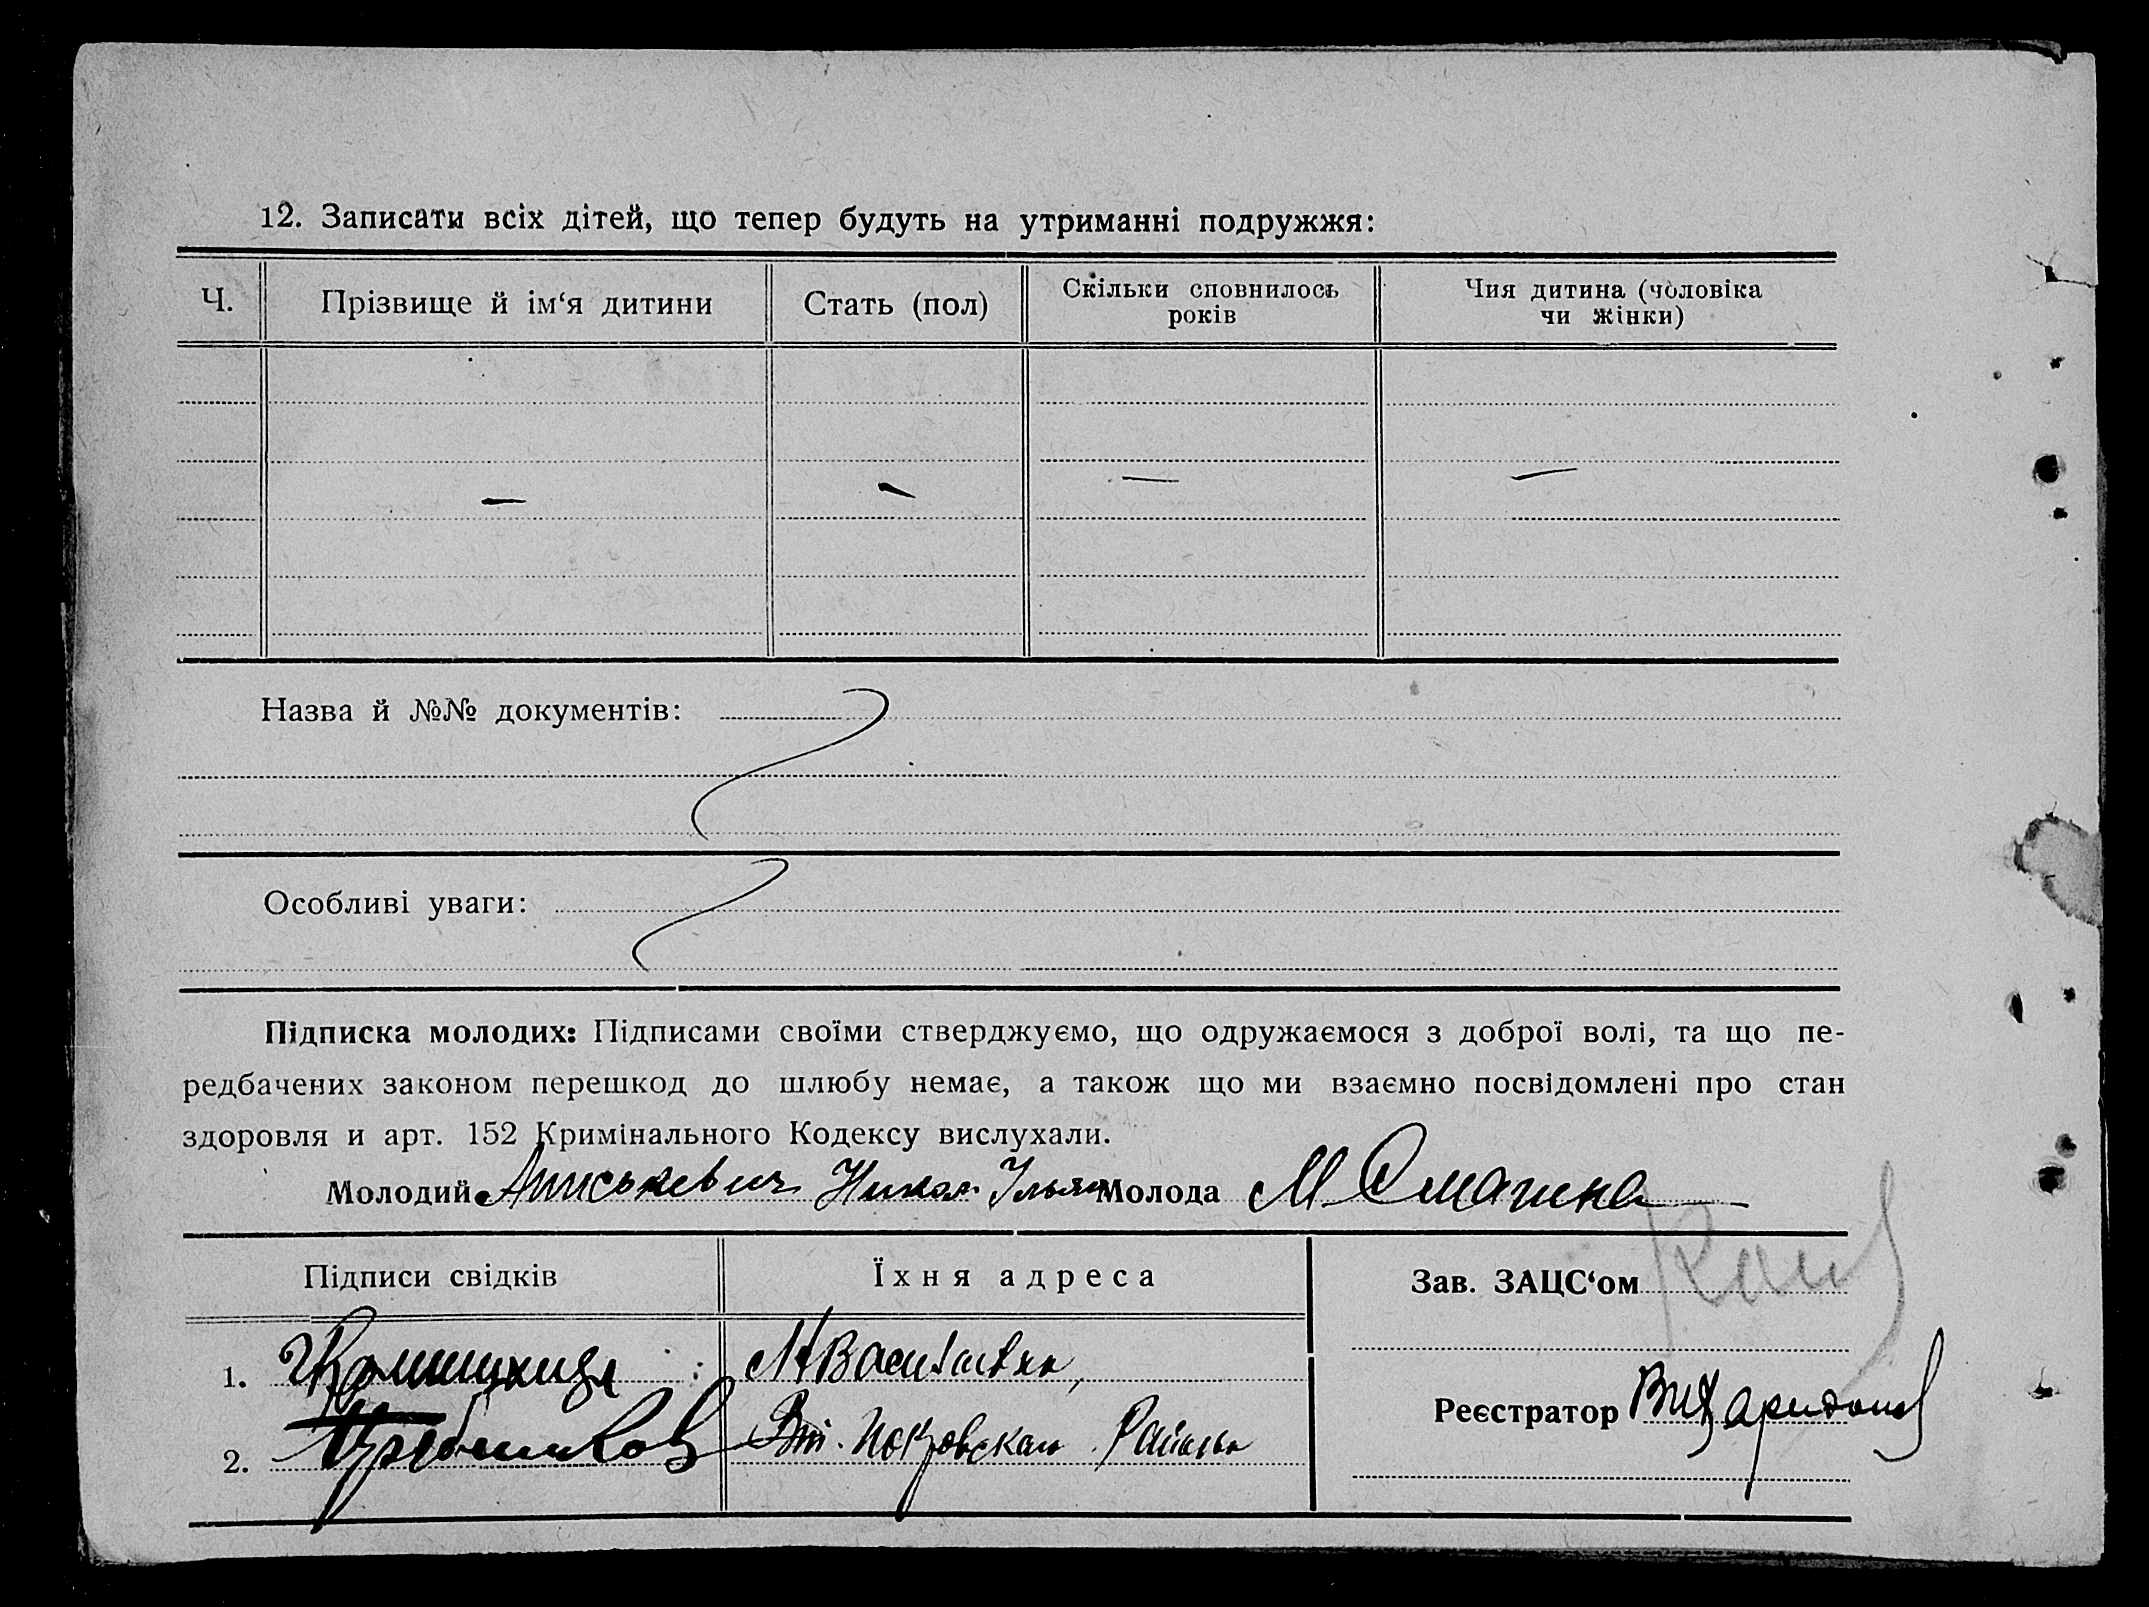 12. Записати всіх дітей, що тепер будуть на утриманні подружжя:
Ч. Прізвище й ім‘я дитини Стать (пол) Скільки сповнилось років Чия дитина (чоловіка чи жінки)
— — — —
Назва й №№ документів:
Особливі уваги:
Підписка молодих: Підписами своїми стверджуємо, що одружаємося з доброї волі, та що пе-
редбачених законом перешкод до шлюбу немає, а також що ми взаємно посвідомлені про стан
здоровля и арт. 152 Кримінального Кодексу вислухали.
Молодий Молода М Смагина
Підписи свідків Їхня адреса Зав. ЗАЦС‘ом
1.
Реєстратор
2. Покровскаго Района